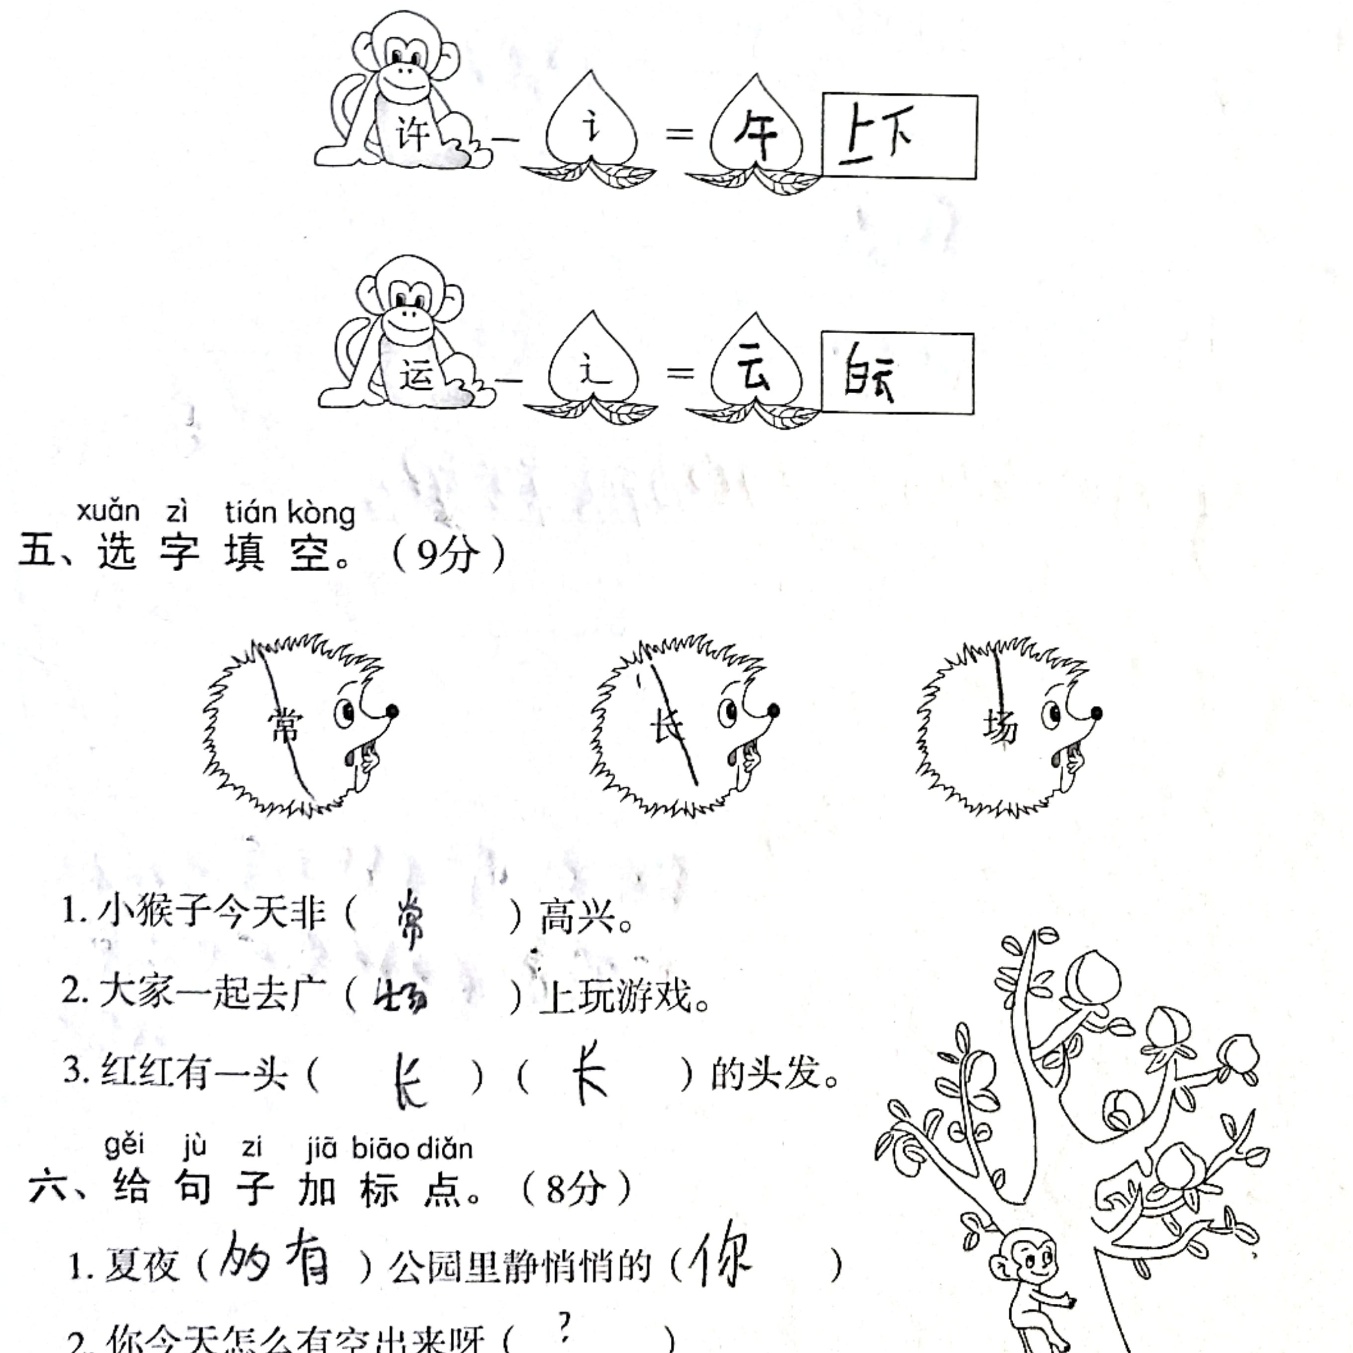 许 － 讠 ＝ 午 上下
运 － 辶 ＝ 云 白云
xuǎn zì tián kòng
五、选字填空。（9分）
常 长 场
1. 小猴子今天非（常）高兴。
2. 大家一起去广（场）上玩游戏。
3. 红红有一头（长）（长）的头发。
gěi jù zi jiā biāo diǎn
六、给句子加标点。（8分）
1. 夏夜（的有）公园里静悄悄的（你）
2. 你今天怎么有空出来呀（?）